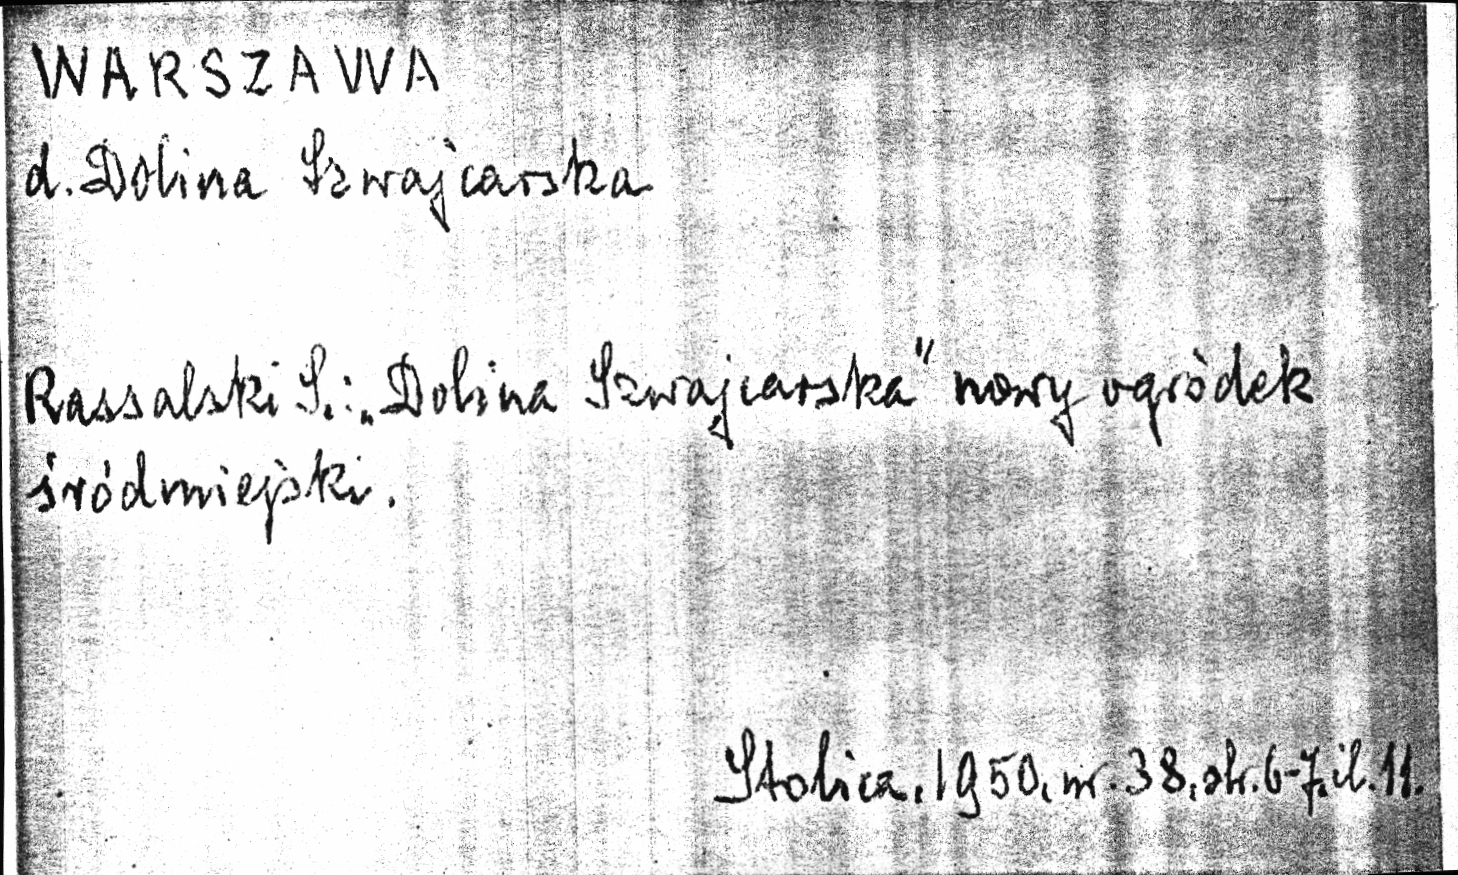 WARSZAWA
d. Dolina Szwajcarska
Rassalski S.: „Dolina Szwajcarska" nowy ogródek
śródmiejski.
Stolica, 1950, nr. 38, str. 6-7, il. 11.